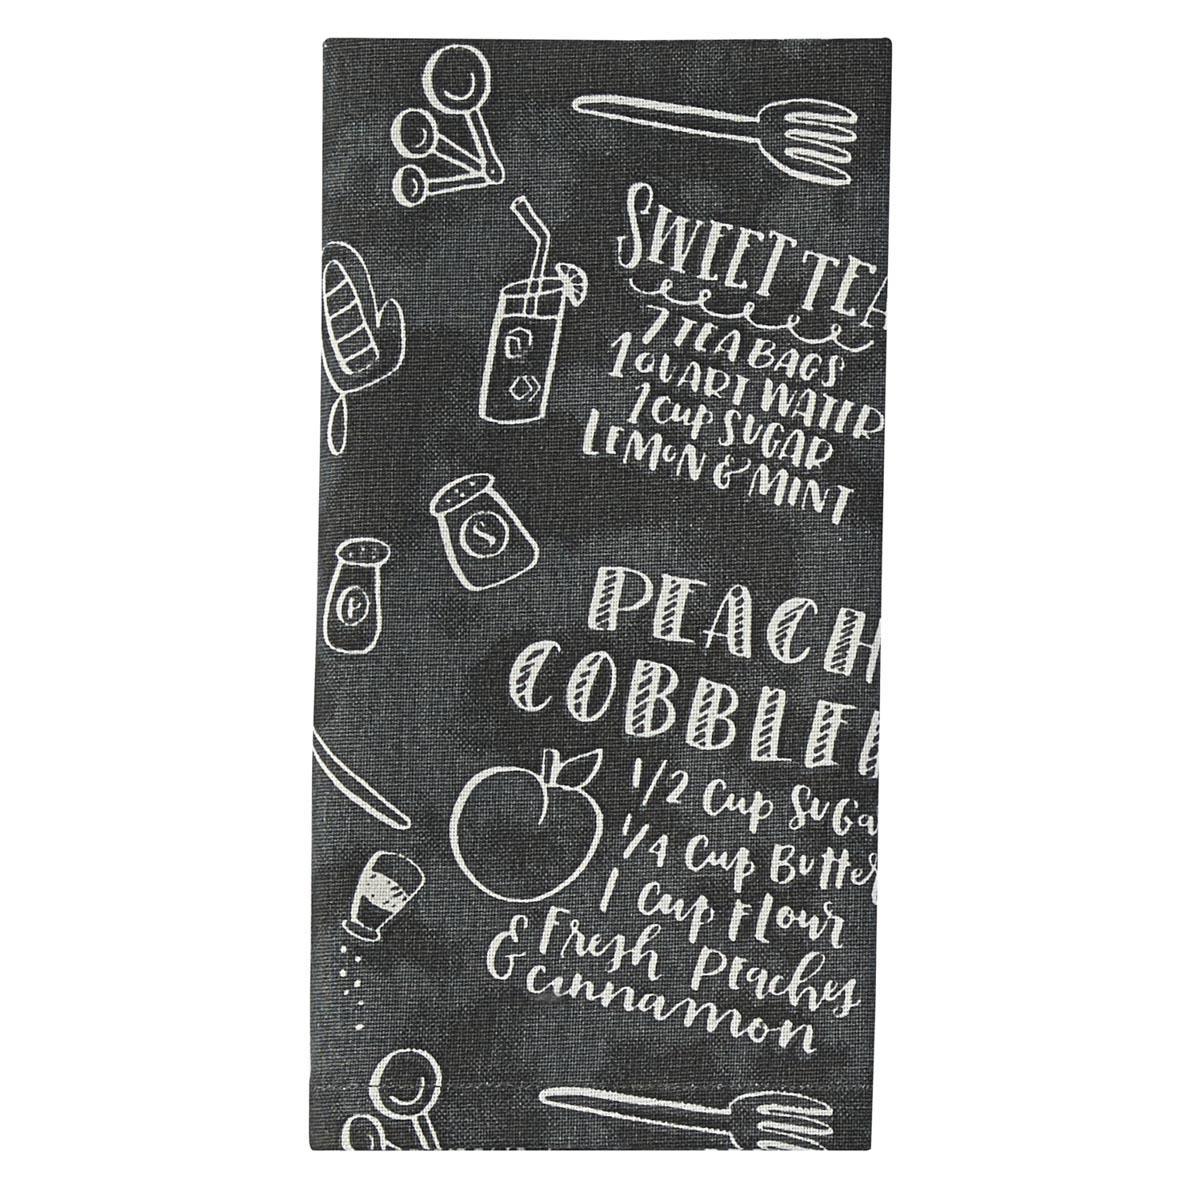 SWEET TEA
7 TEA BAGS
1 QUART WATER
1 CUP SUGAR
LEMON & MINT
S
P
PEACH
COBBLER
1/2 Cup Suga
1/4 Cup Butter
1 Cup Flour
& Fresh Peaches
Cinnamon